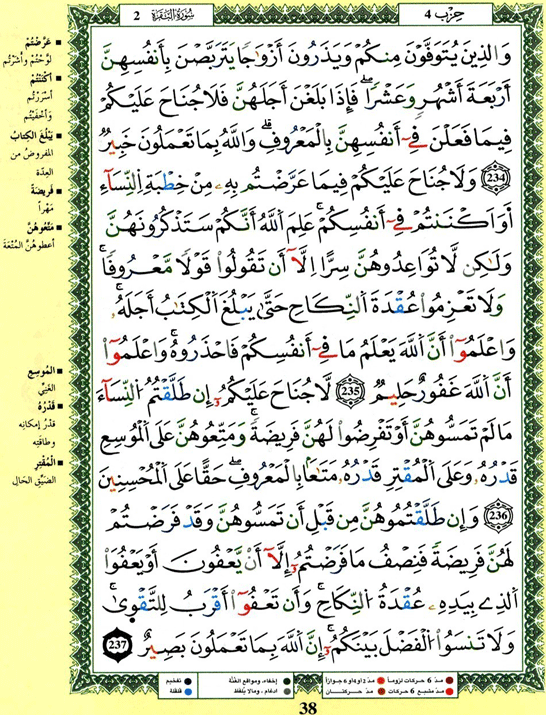 حِزْب 4
سُورَةُ البَقَرَة 2
وَالَّذِينَ يُتَوَفَّوْنَ مِنكُمْ وَيَذَرُونَ أَزْوَٰجًا يَتَرَبَّصْنَ بِأَنفُسِهِنَّ
أَرْبَعَةَ أَشْهُرٍ وَعَشْرًا ۖ فَإِذَا بَلَغْنَ أَجَلَهُنَّ فَلَا جُنَاحَ عَلَيْكُمْ
فِيمَا فَعَلْنَ فِىٓ أَنفُسِهِنَّ بِالْمَعْرُوفِ ۗ وَاللَّهُ بِمَا تَعْمَلُونَ خَبِيرٌ
234 وَلَا جُنَاحَ عَلَيْكُمْ فِيمَا عَرَّضْتُم بِهِۦ مِنْ خِطْبَةِ النِّسَآءِ
أَوْ أَكْنَنتُمْ فِىٓ أَنفُسِكُمْ ۚ عَلِمَ اللَّهُ أَنَّكُمْ سَتَذْكُرُونَهُنَّ
وَلَٰكِن لَّا تُوَاعِدُوهُنَّ سِرًّا إِلَّآ أَن تَقُولُوا۟ قَوْلًا مَّعْرُوفًا ۚ
وَلَا تَعْزِمُوا۟ عُقْدَةَ النِّكَاحِ حَتَّىٰ يَبْلُغَ الْكِتَٰبُ أَجَلَهُۥ ۚ
وَاعْلَمُوٓا۟ أَنَّ اللَّهَ يَعْلَمُ مَا فِىٓ أَنفُسِكُمْ فَاحْذَرُوهُ ۚ وَاعْلَمُوٓا۟
أَنَّ اللَّهَ غَفُورٌ حَلِيمٌ 235 لَّا جُنَاحَ عَلَيْكُمُۥٓ إِن طَلَّقْتُمُ النِّسَآءَ
مَا لَمْ تَمَسُّوهُنَّ أَوْ تَفْرِضُوا۟ لَهُنَّ فَرِيضَةً ۚ وَمَتِّعُوهُنَّ عَلَى الْمُوسِعِ
قَدْرُهُۥ وَعَلَى الْمُقْتِرِ قَدْرُهُۥ مَتَٰعًۢا بِالْمَعْرُوفِ ۖ حَقًّا عَلَى الْمُحْسِنِينَ
236 وَإِن طَلَّقْتُمُوهُنَّ مِن قَبْلِ أَن تَمَسُّوهُنَّ وَقَدْ فَرَضْتُمْ
لَهُنَّ فَرِيضَةً فَنِصْفُ مَا فَرَضْتُمُۥٓ إِلَّآ أَنْ يَّعْفُونَ أَوْ يَعْفُوَا۟
الَّذِى بِيَدِهِۦ عُقْدَةُ النِّكَاحِ ۚ وَأَن تَعْفُوٓا۟ أَقْرَبُ لِلتَّقْوَىٰ ۚ
وَلَا تَنسَوُا۟ الْفَضْلَ بَيْنَكُمُۥٓ ۚ إِنَّ اللَّهَ بِمَا تَعْمَلُونَ بَصِيرٌ 237
■ عَرَّضْتُمْ
لَوَّحْتُمْ وَأَشَرْتُمْ
■ أَكْنَنْتُمْ
أَسْرَرْتُمْ
وَأَخْفَيْتُمْ
■ يَبْلُغَ الكِتَابُ
المفروضُ من
العِدَّة
■ فَرِيضَةً
مَهْراً
■ مَتِّعُوهُنَّ
أعطوهُنَّ المُتْعَةَ
■ المُوسِعِ
الغَنِيِّ
■ قَدْرُهُ
قَدْرُ إمكَانِه
وطاقَتِه
■ المُقْتِرِ
الضَّيِّقِ الحَال
مدّ 6 حركات لزوماً
مدّ 2 أو 4 أو 6 جوازاً
مدّ مشبع 6 حركات
مدّ حركتــان
إخفاء، ومواقع الغُنَّة
ادغام ، ومالا يُلفَظ
تفخيم
قلقلة
38